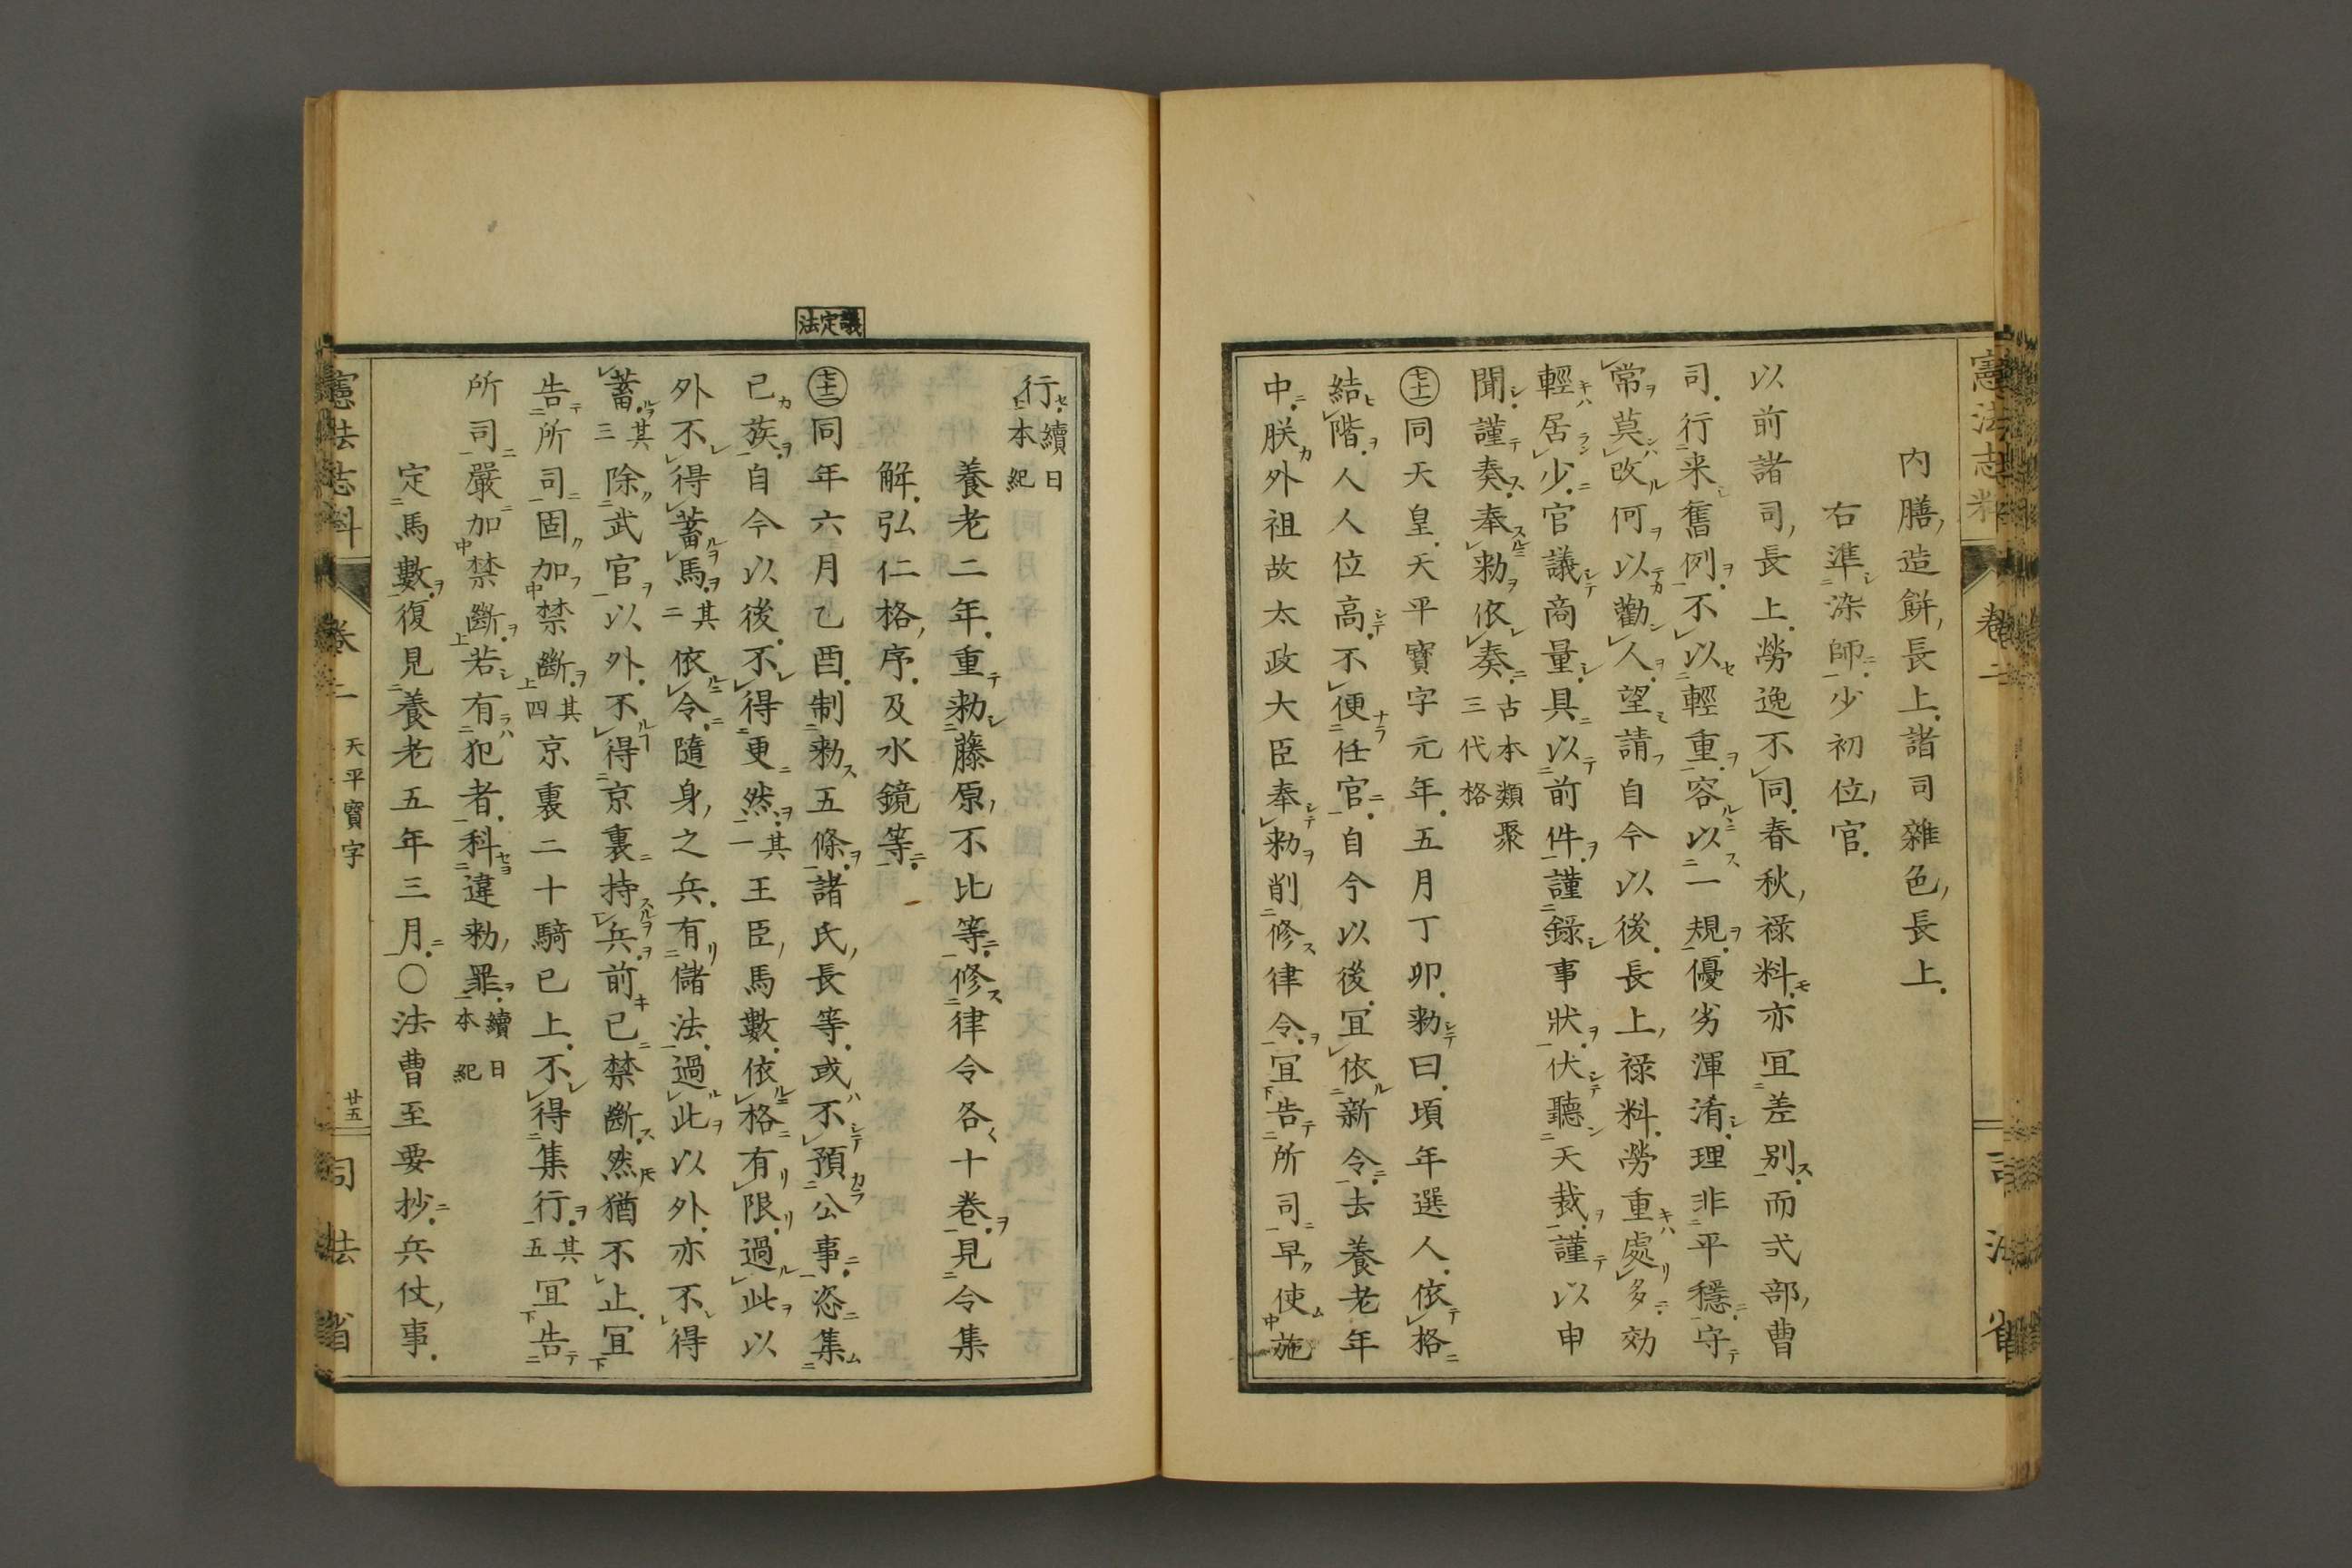 内膳造餅長上諸司雜色長上
右準染師少初位官
以前諸司長上勞逸不同春秋祿料亦冝差別而式部曹
司行来舊例不以輕重容以一規優劣渾淆理非平穩守
常莫改何以勸人望請自今以後長上祿料勞重處多効
輕居少官議商量具以前件謹錄事狀伏聽天裁謹以申
聞謹奏奉勅依奏古本類聚三代格
七十一同天皇天平寶字元年五月丁卯勅曰頃年選人依格
結階人人位高不便任官自今以後冝依新令去養老年
中朕外祖故太政大臣奉勅削修律令冝告所司早使施
行續日本紀
養老二年重勅藤原不比等修律令各十卷見令集
解弘仁格序及水鏡等
議定法
七十二同年六月乙酉制勅五條諸氏長等或不預公事恣集
已族自今以後不得更然其一王臣馬數依格有限過此以
外不得蓄馬其二依令隨身之兵有儲法過此以外亦不得
蓄其三除武官以外不得京裏持兵前已禁斷然猶不止冝
告所司固加禁斷其四京裏二十騎已上不得集行其五冝告
所司嚴加禁斷若有犯者科違勅罪續日本紀
定馬數復見養老五年三月〇法曹至要抄兵仗事
憲法志料
卷二
天平寶字
廿五
司法省